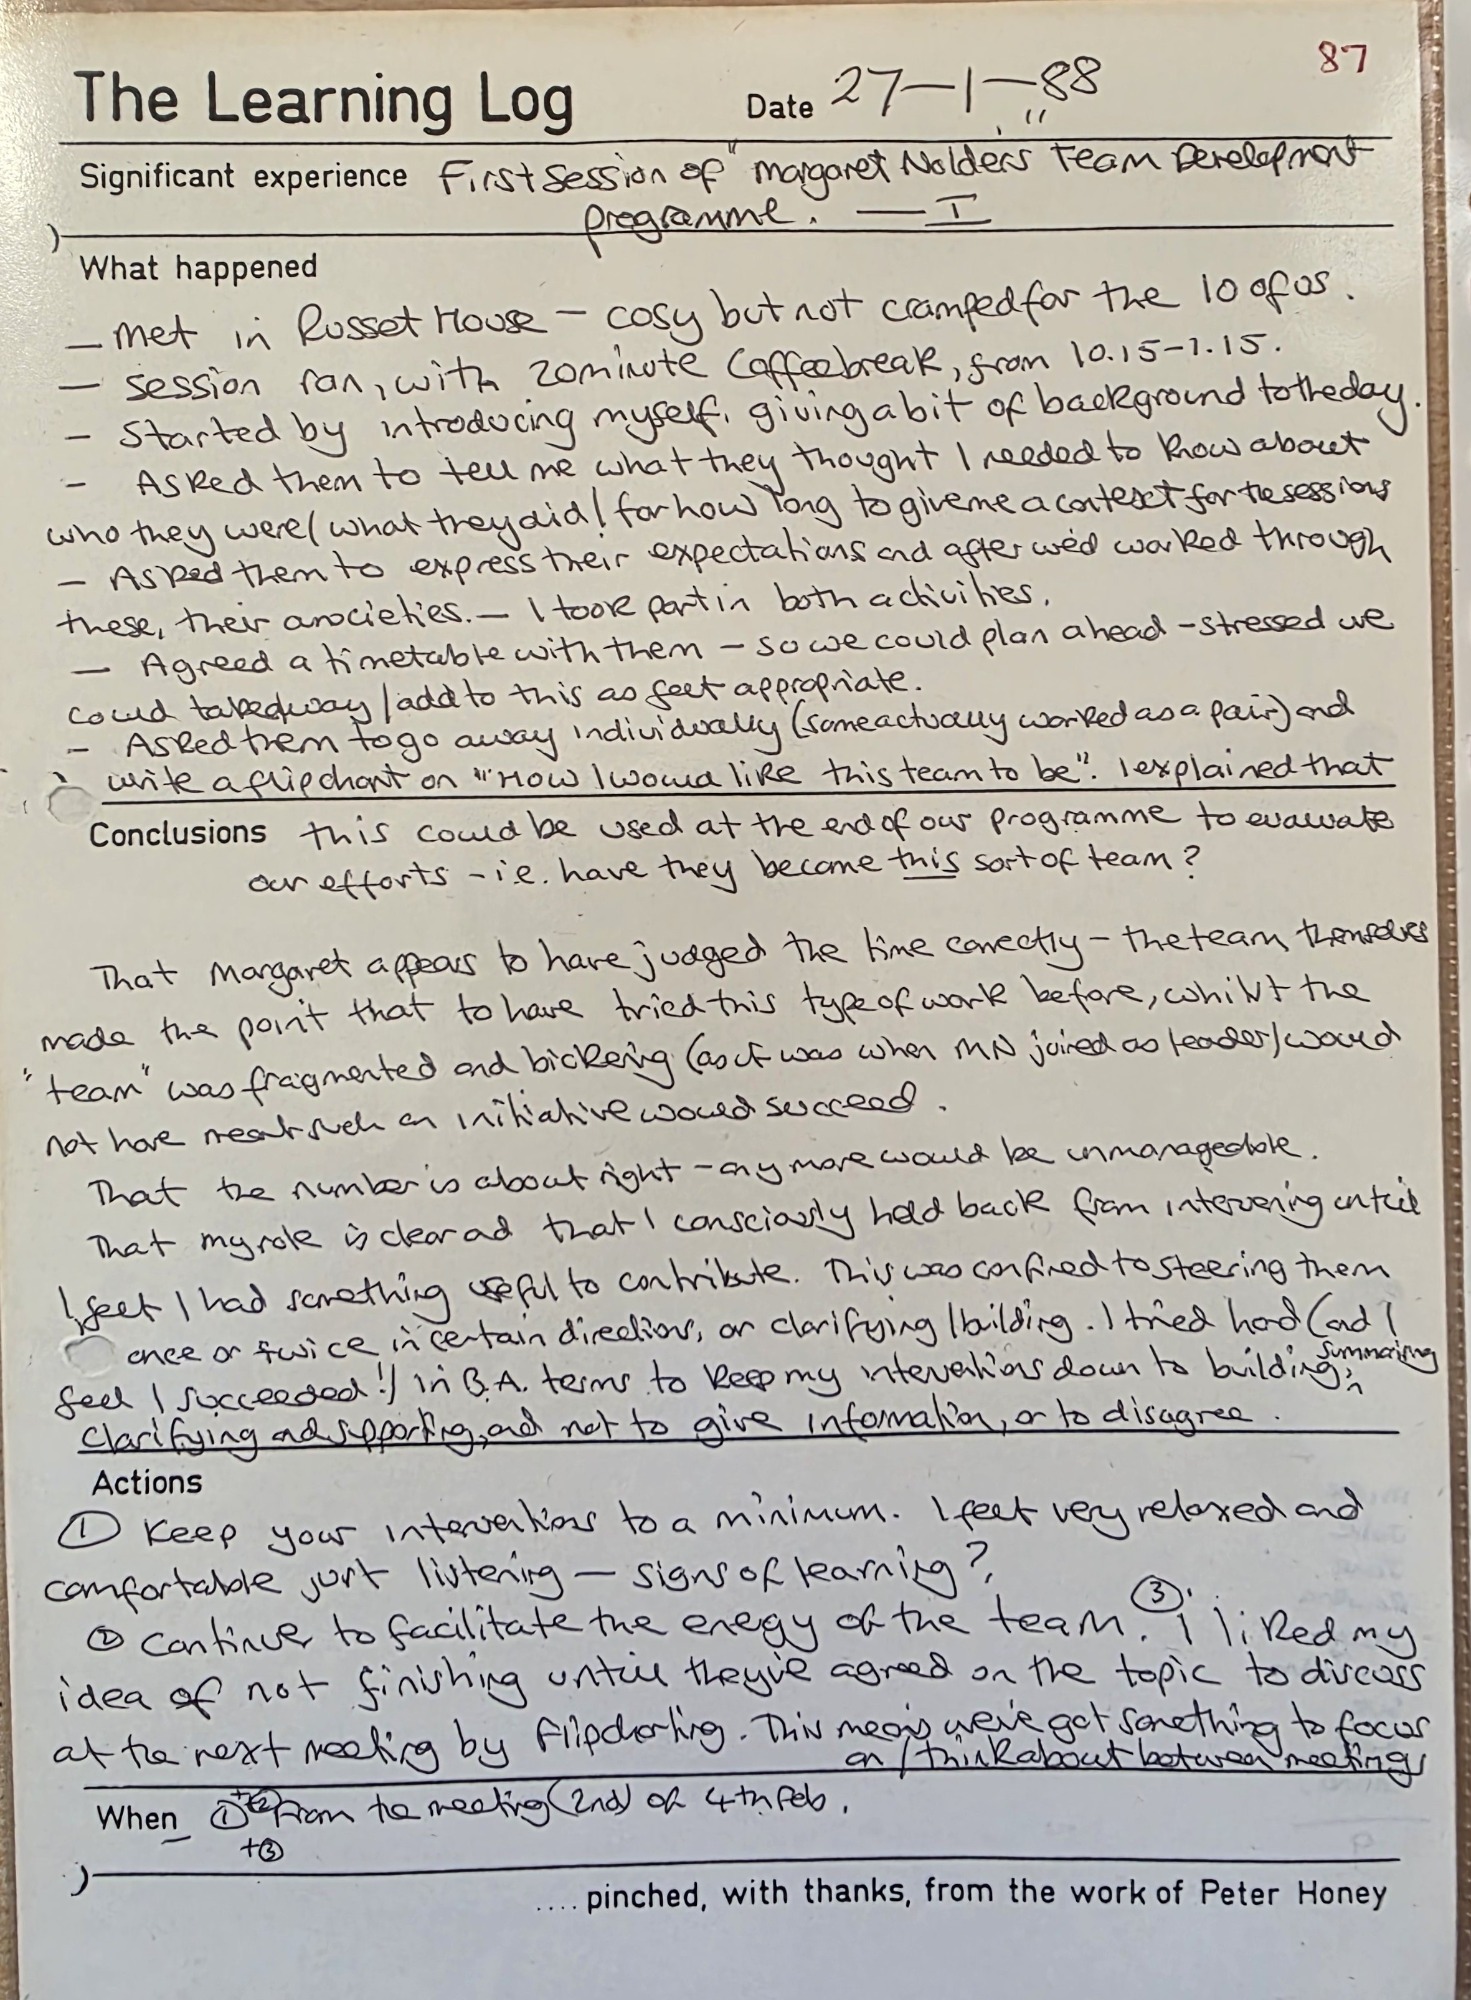 87
The Learning Log Date 27-1-88
Significant experience First session of "Margaret Nolder's Team Development
programme. — I
What happened
- Met in Russet House - cosy but not cramped for the 10 of us.
- Session ran, with 20 minute coffee break, from 10.15-1.15.
- Started by introducing myself, giving a bit of background to the day.
- Asked them to tell me what they thought I needed to know about
who they were / what they did / for how long to give me a context for the sessions
- Asked them to express their expectations and after we'd worked through
these, their anxieties. - I took part in both activities.
- Agreed a timetable with them - so we could plan ahead - stressed we
could take away / add to this as felt appropriate.
- Asked them to go away individually (some actually worked as a pair) and
write a flipchart on "How I would like this team to be". I explained that
Conclusions this could be used at the end of our programme to evaluate
our efforts - i.e. have they become this sort of team?
That Margaret appears to have judged the time correctly - the team themselves
made the point that to have tried this type of work before, whilst the
"team" was fragmented and bickering (as it was when MN joined as leader) would
not have meant such an initiative would succeed.
That the number is about right - any more would be unmanageable.
That my role is clear and that I consciously held back from intervening until
I felt I had something useful to contribute. This was confined to steering them
once or twice in certain directions, or clarifying / building. I tried hard (and I
feel I succeeded!) in B.A. terms to keep my interventions down to building, summarising
clarifying and supporting, and not to give information, or to disagree.
Actions
① Keep your interventions to a minimum. I felt very relaxed and
comfortable just listening - signs of learning?
② Continue to facilitate the energy of the team. ③ I liked my
idea of not finishing until they've agreed on the topic to discuss
at the next meeting by flipcharting. This means we've got something to focus
on / think about between meetings
When ① + ② From the meeting (2nd) of 4th Feb.
+ ③
.... pinched, with thanks, from the work of Peter Honey